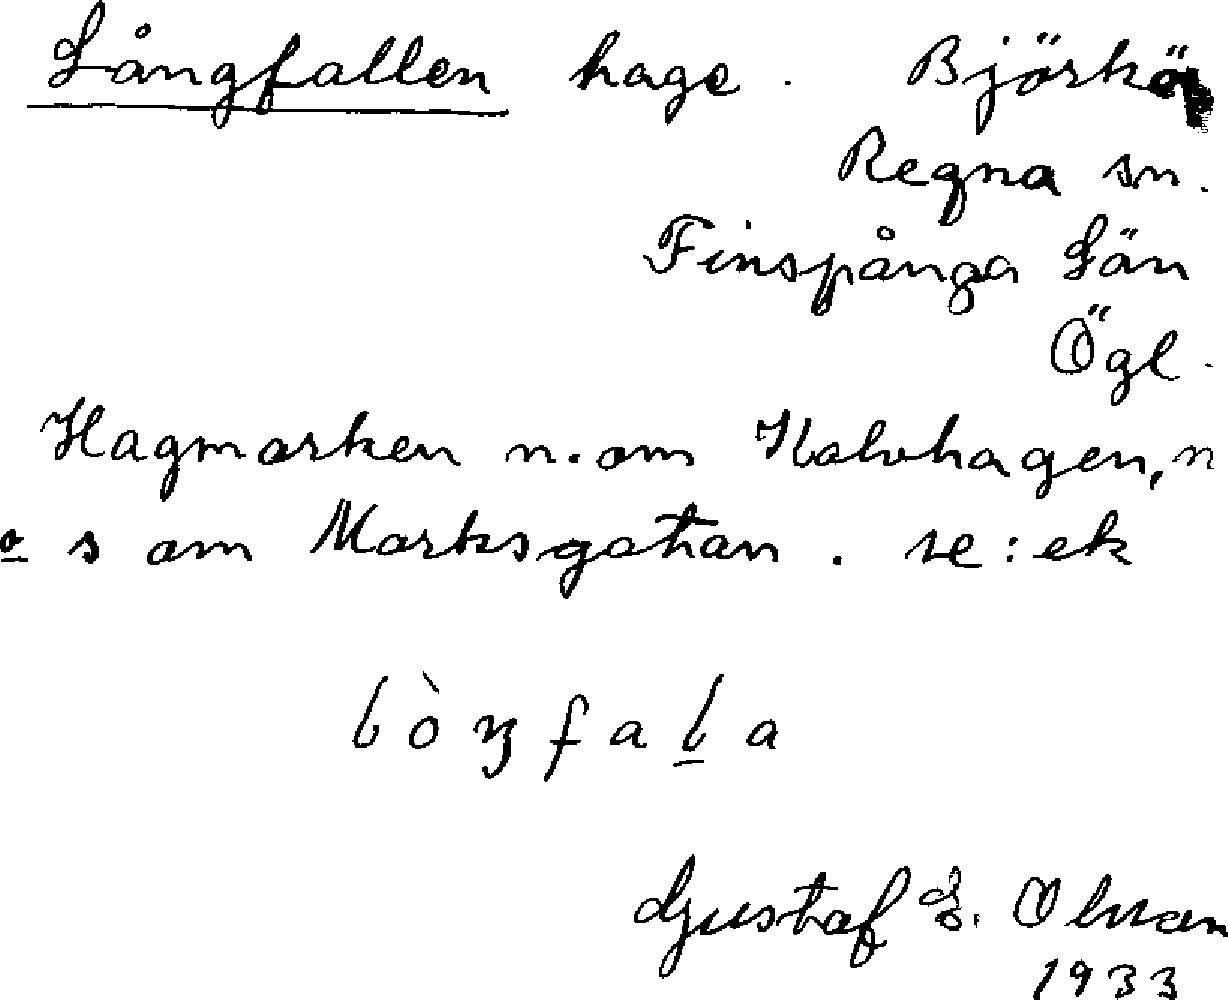 Långfallen hage. Björkö
Regna sn.
Finspånga Län
Ögl.
Hagmarken n.om Kalvhagen, n
o s om Marksgatan. se: ek
lòŋfala
Gustaf E. Olsson
1933